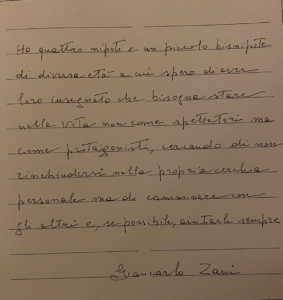 Ho quattro nipoti e un piccolo bisnipote
di diversa età a cui spero di aver
loro insegnato che bisogna stare
nella vita non come spettatori ma
come protagonisti, cercando di non
rinchiudersi nella propria cerchia
personale ma di camminare con
gli altri e, se possibile, aiutarli sempre
Giancarlo Zani